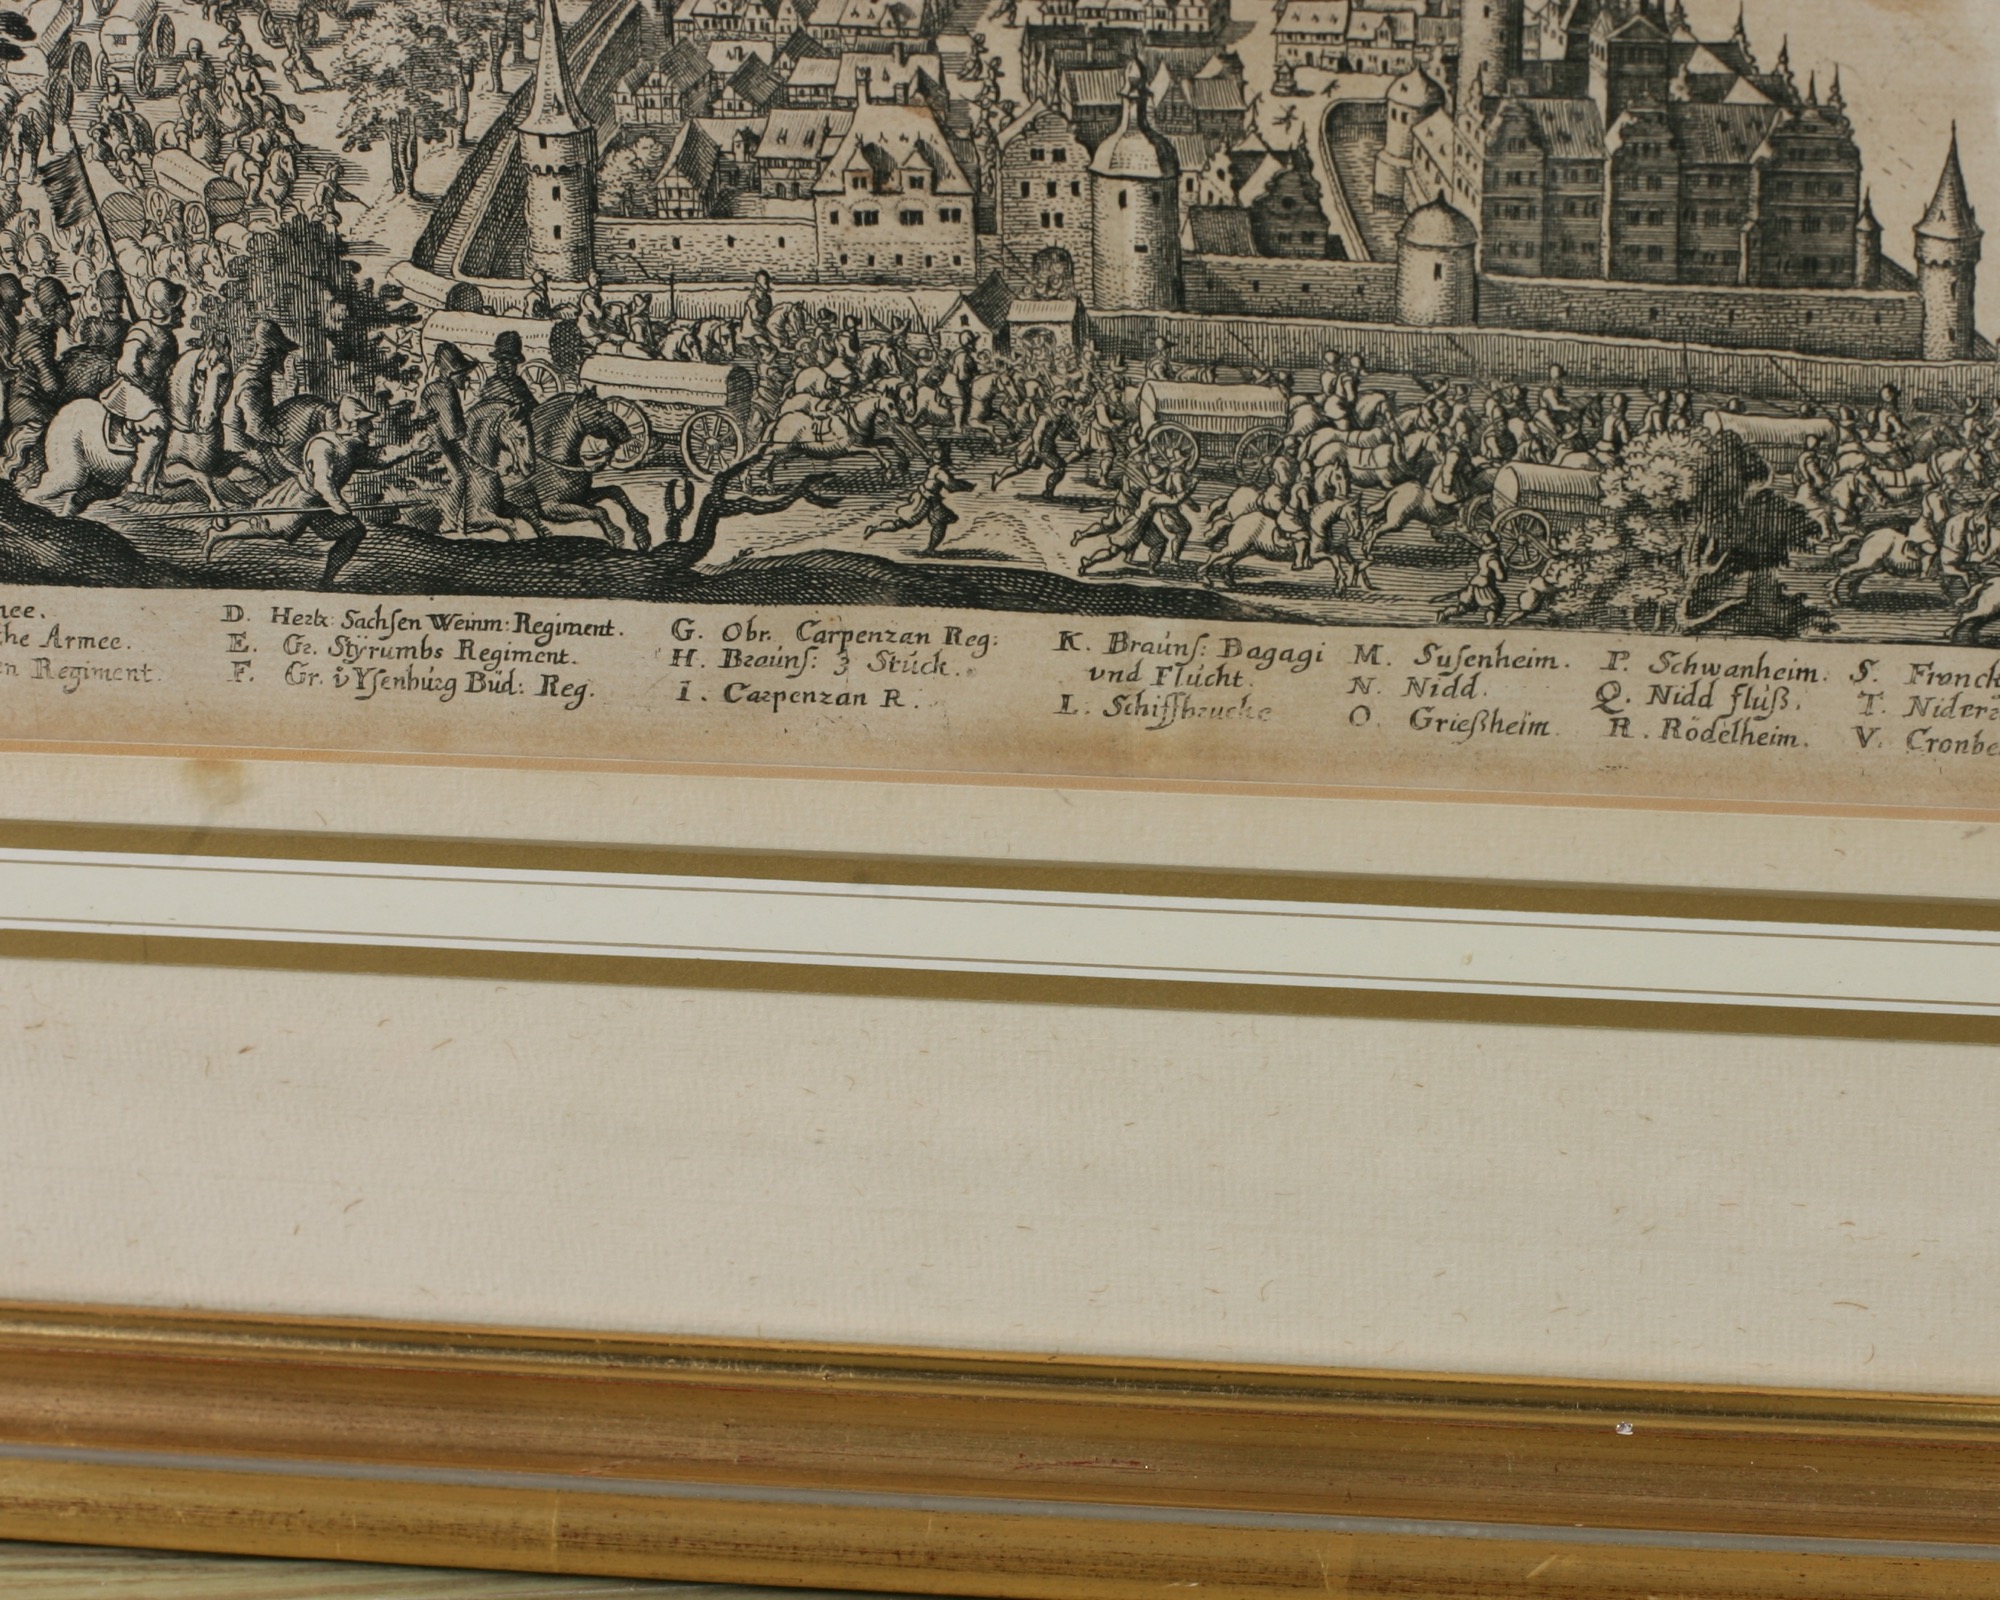 he Armee.
n Regiment.
D. Hertz: Sachsen Weinm: Regiment.
E. Gr. Styrumbs Regiment.
F. Gr. v Ysenburg Büd: Reg.
G. Obr. Carpenzan Reg:
H. Braunſ: 3 Stuck.
I. Carpenzan R.
K. Braunſ: Bagagi
vnd Flucht.
L. Schiffbrucke
M. Suſenheim.
N. Nidd.
O. Grießheim.
P. Schwanheim.
Q. Nidd fluß.
R. Rödelheim.
S. Franck
T. Nider
V. Cronbe